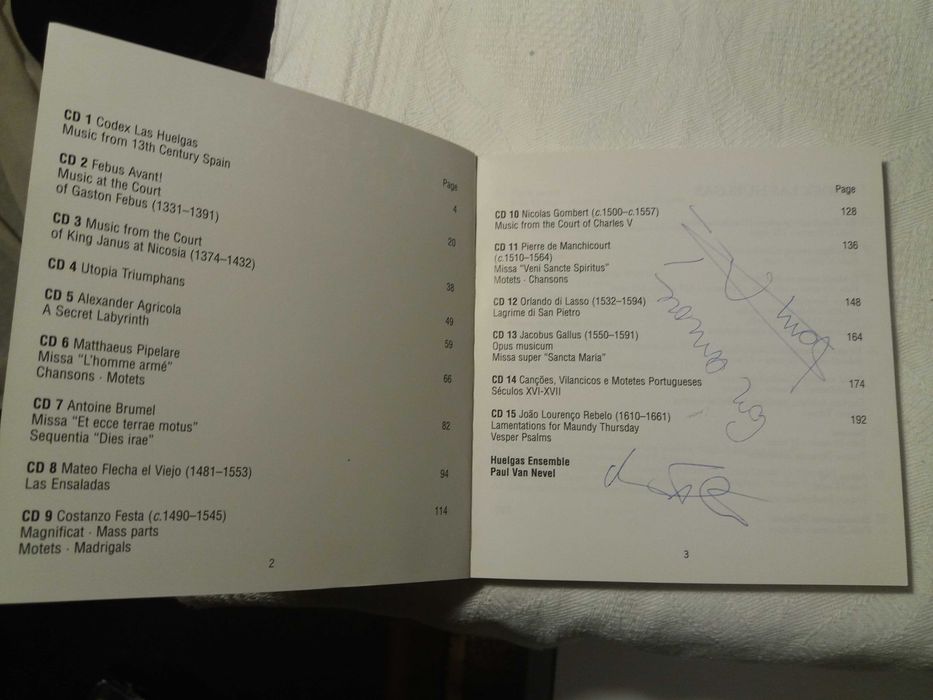 CD 1 Codex Las Huelgas
Music from 13th Century Spain
Page
CD 2 Febus Avant!
Music at the Court
of Gaston Febus (1331–1391)
4
CD 3 Music from the Court
of King Janus at Nicosia (1374–1432)
20
CD 4 Utopia Triumphans
38
CD 5 Alexander Agricola
A Secret Labyrinth
49
CD 6 Matthaeus Pipelare
Missa "L'homme armé"
Chansons · Motets
59
66
CD 7 Antoine Brumel
Missa "Et ecce terrae motus"
Sequentia "Dies irae"
82
CD 8 Mateo Flecha el Viejo (1481–1553)
Las Ensaladas
94
CD 9 Costanzo Festa (c.1490–1545)
Magnificat · Mass parts
Motets · Madrigals
114
2
Page
CD 10 Nicolas Gombert (c.1500–c.1557)
Music from the Court of Charles V
128
CD 11 Pierre de Manchicourt
(c.1510–1564)
Missa "Veni Sancte Spiritus"
Motets · Chansons
136
CD 12 Orlando di Lasso (1532–1594)
Lagrime di San Pietro
148
CD 13 Jacobus Gallus (1550–1591)
Opus musicum
Missa super "Sancta Maria"
164
CD 14 Canções, Vilancicos e Motetes Portugueses
Séculos XVI-XVII
174
CD 15 João Lourenço Rebelo (1610–1661)
Lamentations for Maundy Thursday
Vesper Psalms
192
Huelgas Ensemble
Paul Van Nevel
3